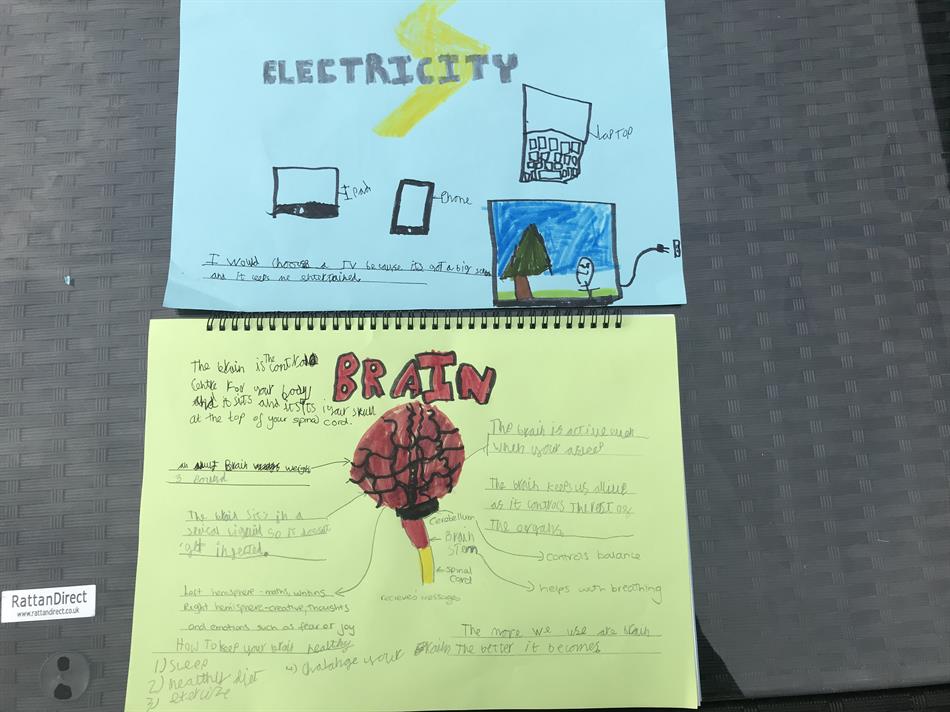 ELECTRICITY
LAPTOP
IPad
Phone
I would choose a TV because it's got a big screen
and it keeps me entertained.
BRAIN
The brain is The control
centre for your body
and it sits and it sits in your skull
at the top of your spinal cord.
The brain is active even
when your asleep
an adult Brain weighs
3 pound
The brain keeps us alive
as it controls The rest of
The organs.
The brain sits in a
special liquid so it doesn't
get injected.
Cerebellum
Brain
Stem
controls balance
spinal
cord
helps with breathing
recieves messages
Left hemisphere - maths, writing
Right hemisphere - creative, thoughts
and emotions such as fear or joy
The more we use are brain
The better it becomes
How to keep your brain healthy
1) Sleep
2) healthy diet
3) exercize
4) chalange your brain
RattanDirect
www.rattandirect.co.uk